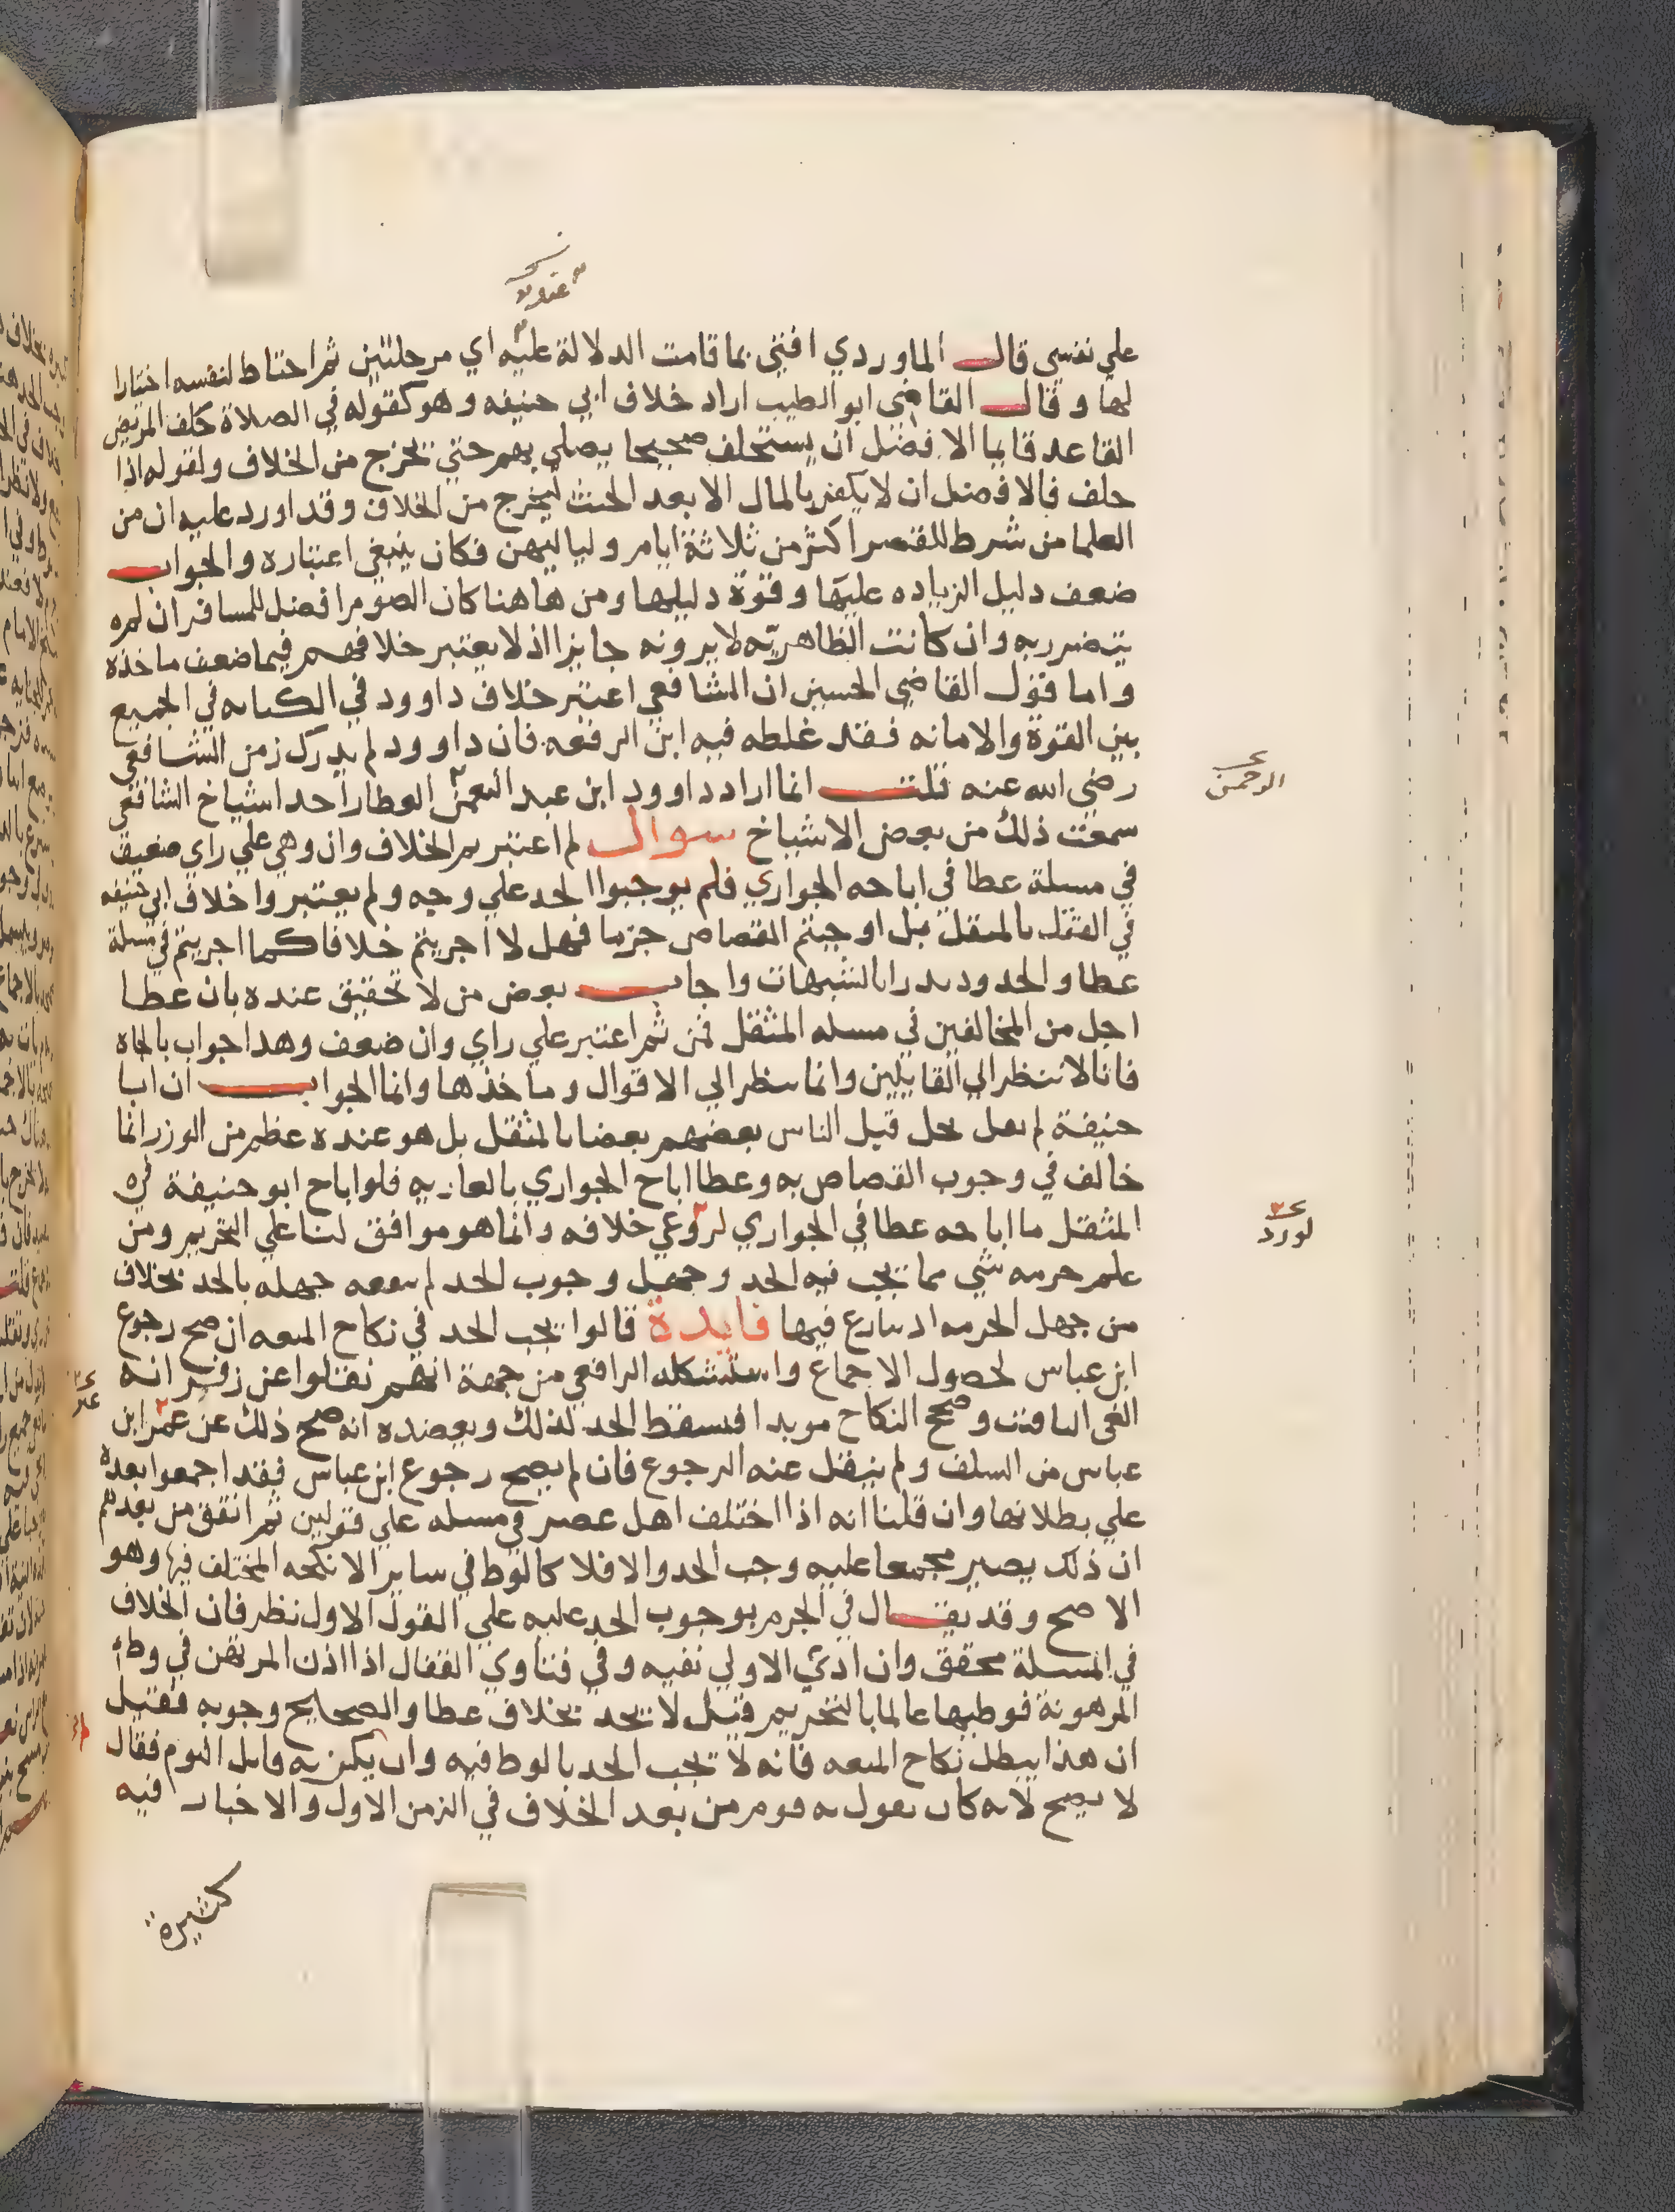 عنده
علي نفسي قال الماوردي افتي بما قامت الدلالة عليه اي مرحلتين ثم احتاط لنفسه اختارا
لها وقال القاضي ابو الطيب اراد خلاف ابي حنيفه وهو كقوله في الصلاة خلف المريض
القاعد قايما الافضل ان يستخلف صحيحا يصلي بهم حتي يخرج من الخلاف ولقوله اذا
حلف فالافضل ان لا يكفر بالمال الا بعد الحنث ليخرج من الخلاف وقد اورد عليه ان من
العلما من شرط للقصر اكثر من ثلاثة ايام ولياليهن فكان ينبغي اعتباره والجواب
ضعف دليل الزياده عليها وقوة دليلها ومن هاهنا كان الصوم افضل للمسافر ان لم
يتضرر به وان كانت الظاهريه لا يرونه جايزا اذ لا يعتبر خلافهم فيما ضعف ماخذه
واما قول القاضي الحسين ان الشافعي اعتبر خلاف داوود في الكتابه في الجميع
بين القوة والامانه فقد غلطه فيه ابن الرفعه فان داوود لم يدرك زمن الشافعي
رضي الله عنه قلت انما اراد داوود ابن عبد النعمن العطار احد اشياخ الشافعي
الرحمن
سمعت ذلك من بعض الاشياخ سوال لم اعتبرتم الخلاف وان وهي علي راي ضعيف
في مسلة عطا في اباحه الجواري فلم يوجبوا الحد علي وجه ولم يعتبروا خلاف ابي حنيفه
في القتل بالمثقل بل اوجبتم القصاص جزما فهل لا اجريتم خلافا كما اجريتم في مسلة
عطا والحدود تدرا بالشبهات واجاب بعض من لا تحقيق عنده بان عطا
اجل من المخالفين في مسله المثقل فمن ثم اعتبر علي راي وان ضعف وهدا جواب بالجاه
فانا لا ننظر الي القايلين وانما ننظر الي الاقوال وماخذها وانما الجواب ان ابا
حنيفة لم يقل بحل قتل الناس بعضهم بعضا بالمثقل بل هو عنده عظيم من الوزر انما
خالف في وجوب القصاص به وعطا اباح الجواري بالعاريه فلو اباح ابو حنيفة في
المثقل ما اباحه عطا في الجواري لروعي خلافه وانما هو موافق لنا علي التحريم ومن
لورد
علم حرمه شي مما يجب فيه الحد وجهل وجوب الحد لم ينفعه جهله بالحد بخلاف
من جهل الحرمه اد ينازع فيها فايدة قالوا يجب الحد في نكاح المتعه ان صح رجوع
ابن عباس لحصول الاجماع واستشكله الرافعي من جهة انهم نقلوا عن زفر انه
الغي التاقيت وصحح النكاح موبدا فسقط الحد لذلك ويعضده انه صح ذلك عن عمر ابن
عباس من السلف ولم ينقل عنه الرجوع فان لم يصح رجوع ابن عباس فقد اجمعوا بعده
علي بطلانها وان قلنا انه اذا اختلف اهل عصر في مسله علي قولين ثم اتفق من بعدهم
ان ذلك يصير مجمعا عليه وجب الحد والا فلا كالوط في ساير الانكحه المختلف فيها وهو
الاصح وقد يقال في الجزم بوجوب الحد عليه علي القول الاول نظر فان الخلاف
في المسلة محقق وان ادي الاولي نفيه وفي فتاوي القفال اذا اذن المرتهن في وطي
المرهونة فوطيها عالما بالتحريم قيل لا يحد بخلاف عطا والصحايح وجوبه فقيل
ان هذا يبطل نكاح المتعه فانه لا يجب الحد بالوط فيه وان لم يكن به قايل اليوم فقال
لا يصح لانه كان يقول به قوم من بعد الخلاف في الزمن الاول والاخبار فيه
كثيرة